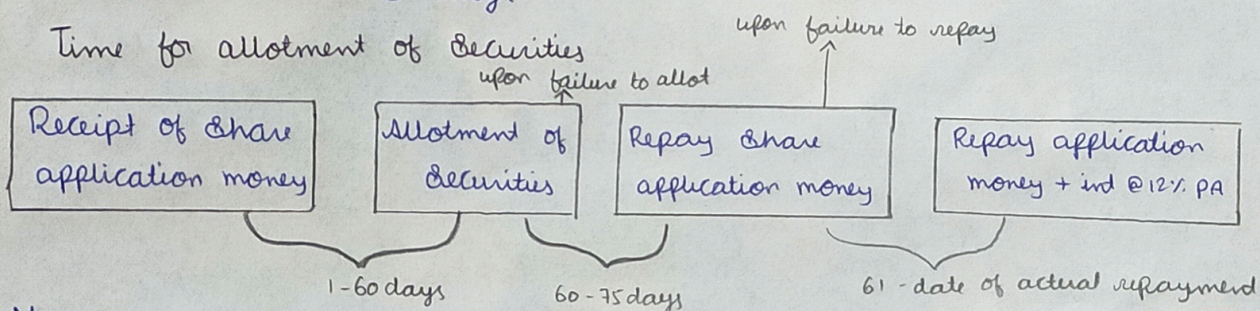 Time for allotment of Securities
upon failure to repay
upon failure to allot
Receipt of Share
application money
Allotment of
Securities
Repay Share
application money
Repay application
money + int @ 12% PA
1-60 days
60-75 days
61 - date of actual repayment